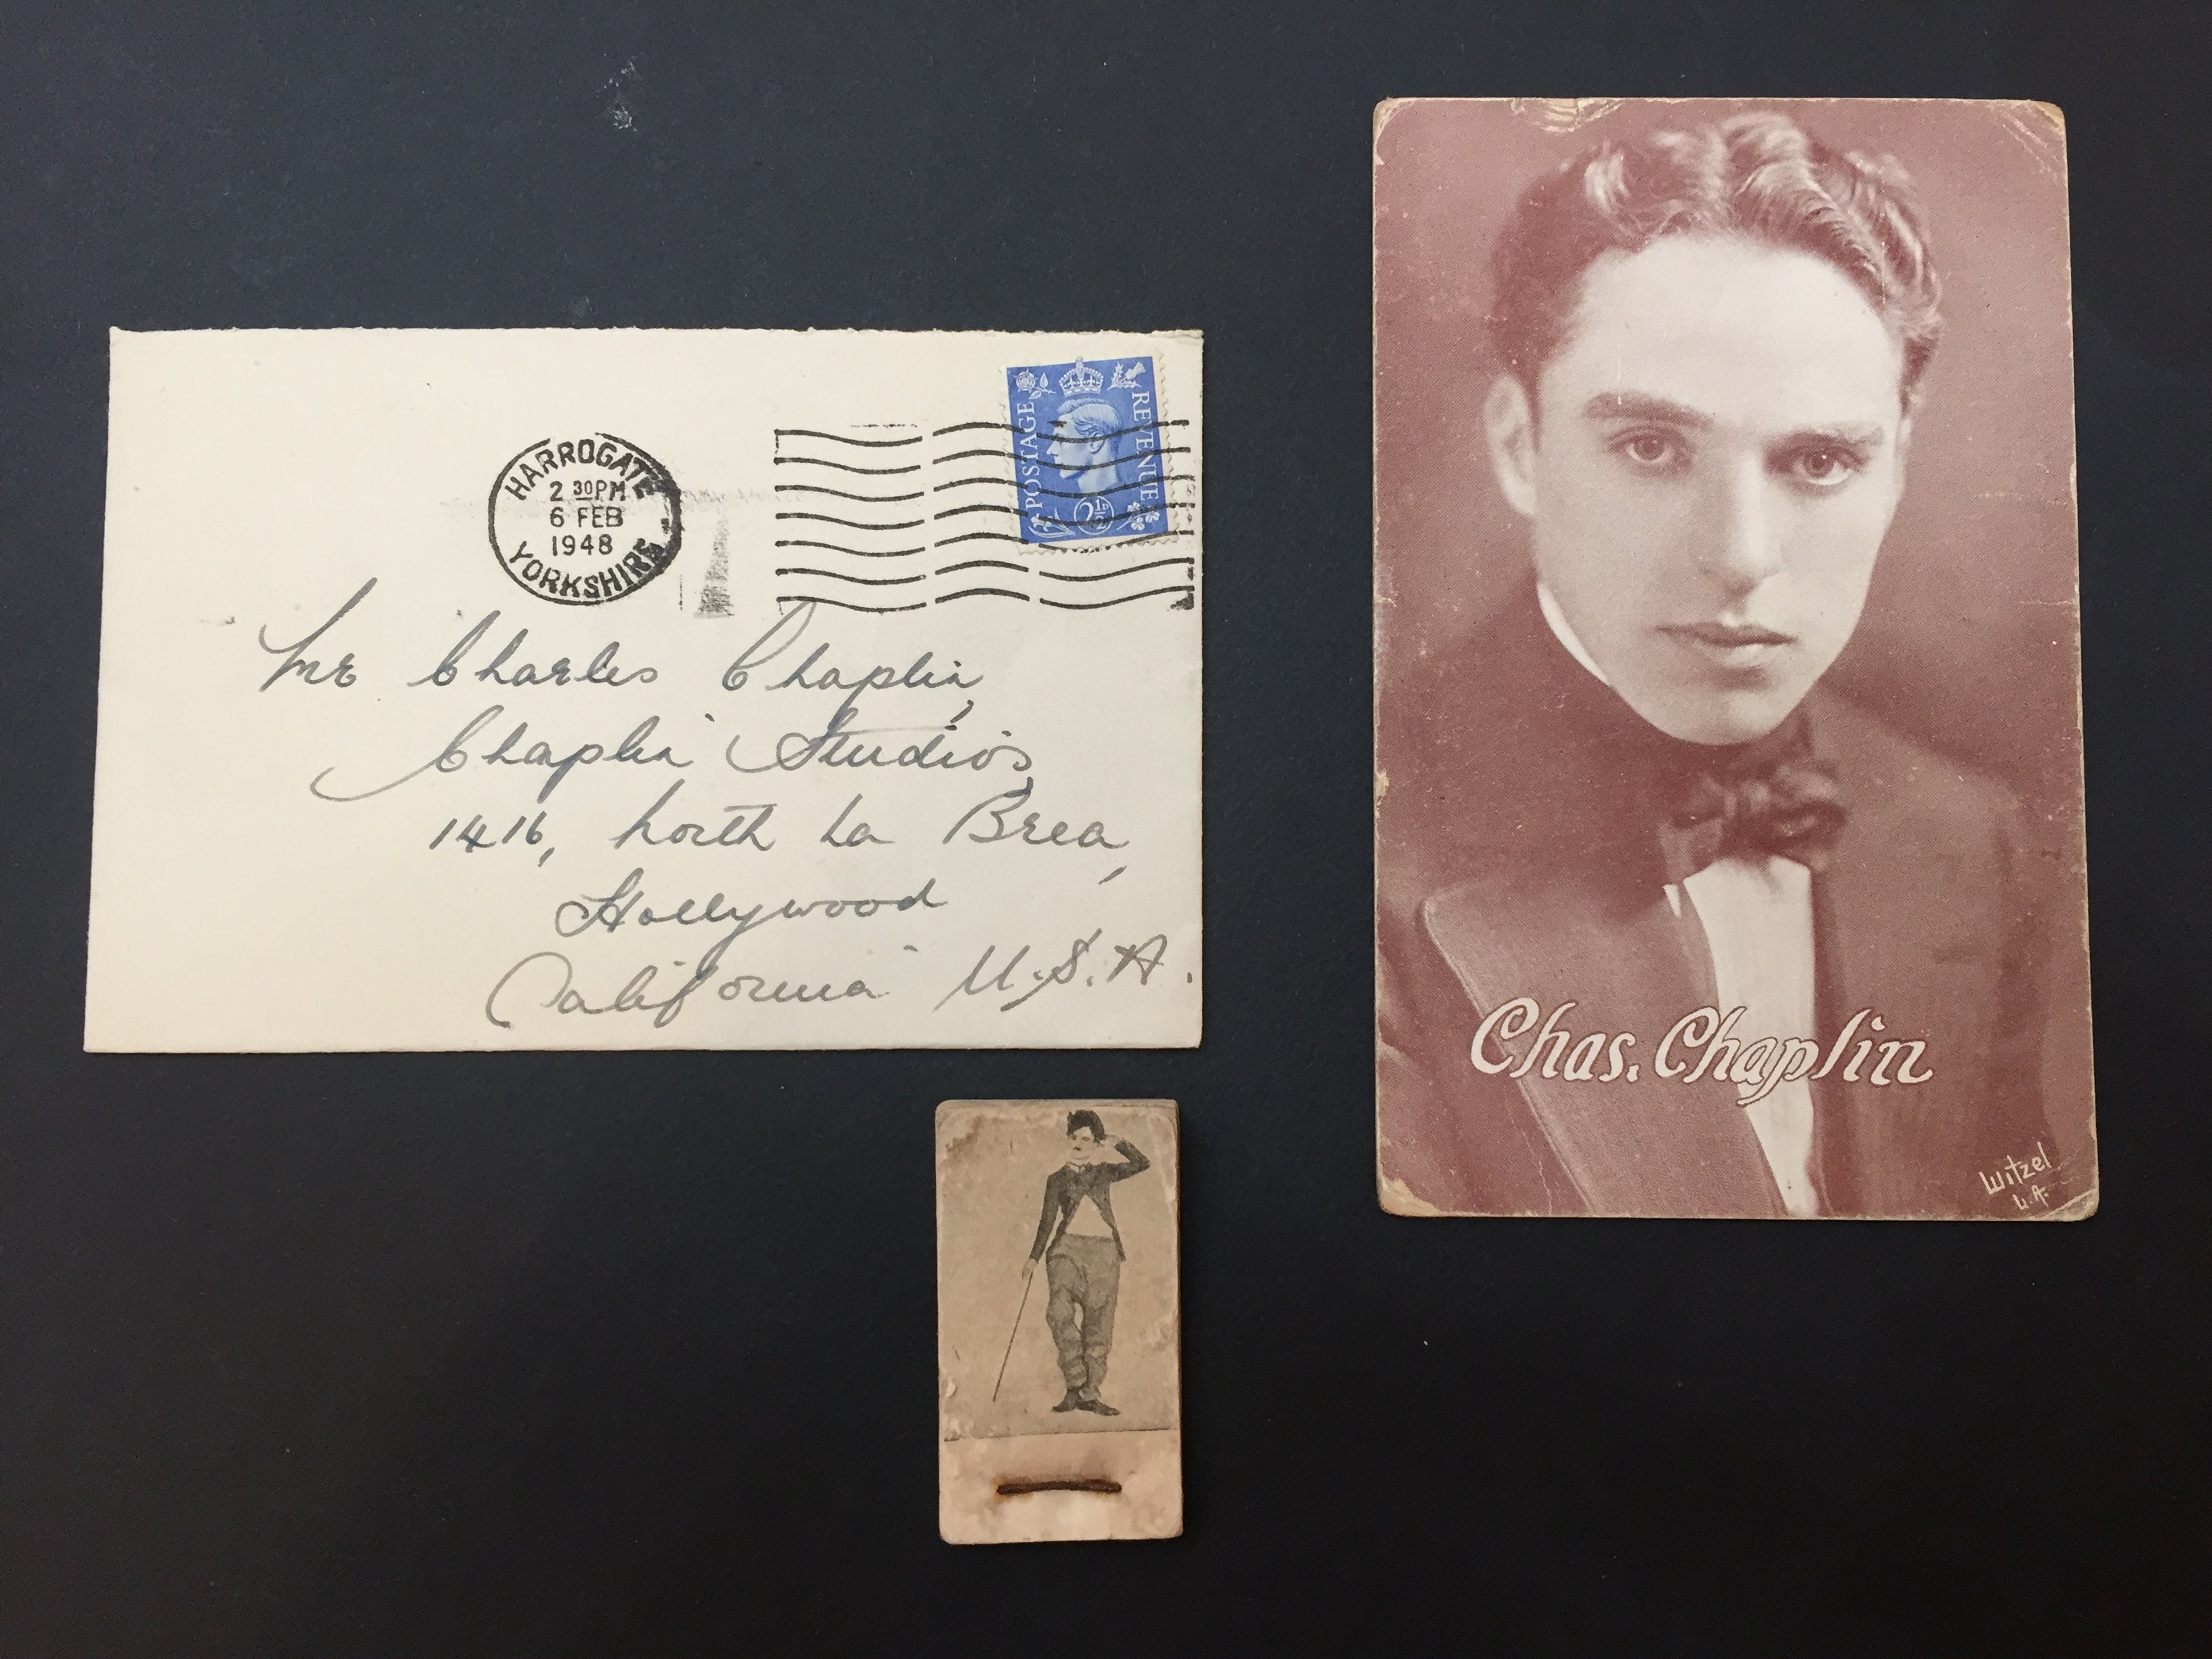 HARROGATE
2 30PM
6 FEB
1948
YORKSHIRE
POSTAGE
REVENUE
2½D
Mr Charles Chaplin,
Chaplin Studios,
1416, North La Brea,
Hollywood
California U.S.A.
Chas. Chaplin
Witzel
L.A.